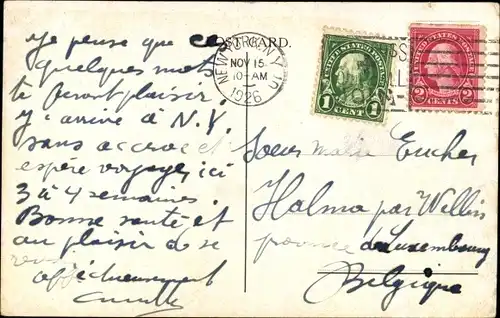 POST CARD.
NEW YORK, N.Y.
NOV 15
10-AM
1926
UNITED STATES POSTAGE
1 CENT 1
UNITED STATES POSTAGE
2 CENTS 2
je pense que ce
quelques mots
te feront plaisir.
j'arrive à N.Y.
sans accroc et
espère voyager ici
3 à 4 semaines.
Bonne santé et
au plaisir de se
revoir
affectueusement
Camille
Soeur Marie Eucher
Halma par Wellin
province de Luxembourg
Belgique